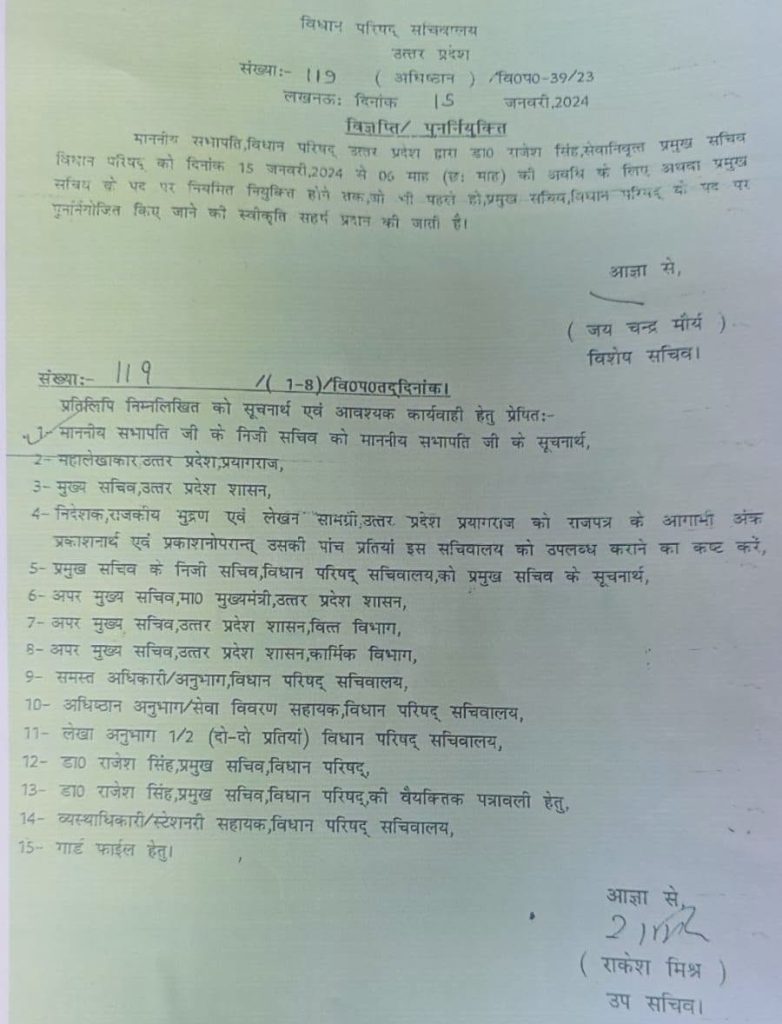 विधान परिषद् सचिवालय
उत्तर प्रदेश
संख्याः- 119 ( अधिष्ठान ) /वि0प0-39/23
लखनऊः दिनांक 15 जनवरी,2024
विज्ञप्ति/ पुनर्नियुक्ति
माननीय सभापति,विधान परिषद् उत्तर प्रदेश द्वारा डा0 राजेश सिंह,सेवानिवृत्त प्रमुख सचिव
विधान परिषद् को दिनांक 15 जनवरी,2024 से 06 माह (छः माह) की अवधि के लिए अथवा प्रमुख
सचिव के पद पर नियमित नियुक्ति होने तक,जो भी पहले हो,प्रमुख सचिव,विधान परिषद् के पद पर
किए जाने की स्वीकृति सहर्ष प्रदान की जाती है।
आज्ञा से,
( जय चन्द्र मौर्य )
विशेष सचिव।
संख्याः- 119 /( 1-8)/वि0प0तद्दिनांक।
प्रतिलिपि निम्नलिखित को सूचनार्थ एवं आवश्यक कार्यवाही हेतु प्रेषितः-
1- माननीय सभापति जी के निजी सचिव को माननीय सभापति जी के सूचनार्थ,
2- महालेखाकार,उत्तर प्रदेश,प्रयागराज,
3- मुख्य सचिव,उत्तर प्रदेश शासन,
4- निदेशक,राजकीय मुद्रण एवं लेखन सामग्री,उत्तर प्रदेश प्रयागराज को राजपत्र के आगामी अंक
प्रकाशनार्थ एवं प्रकाशनोपरान्त् उसकी पांच प्रतियां इस सचिवालय को उपलब्ध कराने का कष्ट करें,
5- प्रमुख सचिव के निजी सचिव,विधान परिषद् सचिवालय,को प्रमुख सचिव के सूचनार्थ,
6- अपर मुख्य सचिव,मा0 मुख्यमंत्री,उत्तर प्रदेश शासन,
7- अपर मुख्य सचिव,उत्तर प्रदेश शासन,वित्त विभाग,
8- अपर मुख्य सचिव,उत्तर प्रदेश शासन,कार्मिक विभाग,
9- समस्त अधिकारी/अनुभाग,विधान परिषद् सचिवालय,
10- अधिष्ठान अनुभाग/सेवा विवरण सहायक,विधान परिषद् सचिवालय,
11- लेखा अनुभाग 1/2 (दो-दो प्रतियां) विधान परिषद् सचिवालय,
12- डा0 राजेश सिंह,प्रमुख सचिव,विधान परिषद्,
13- डा0 राजेश सिंह,प्रमुख सचिव,विधान परिषद्,की वैयक्तिक पत्रावली हेतु,
14- व्यस्थाधिकारी/स्टेशनरी सहायक,विधान परिषद् सचिवालय,
15- गार्ड फाईल हेतु।
आज्ञा से,
( राकेश मिश्र )
उप सचिव।